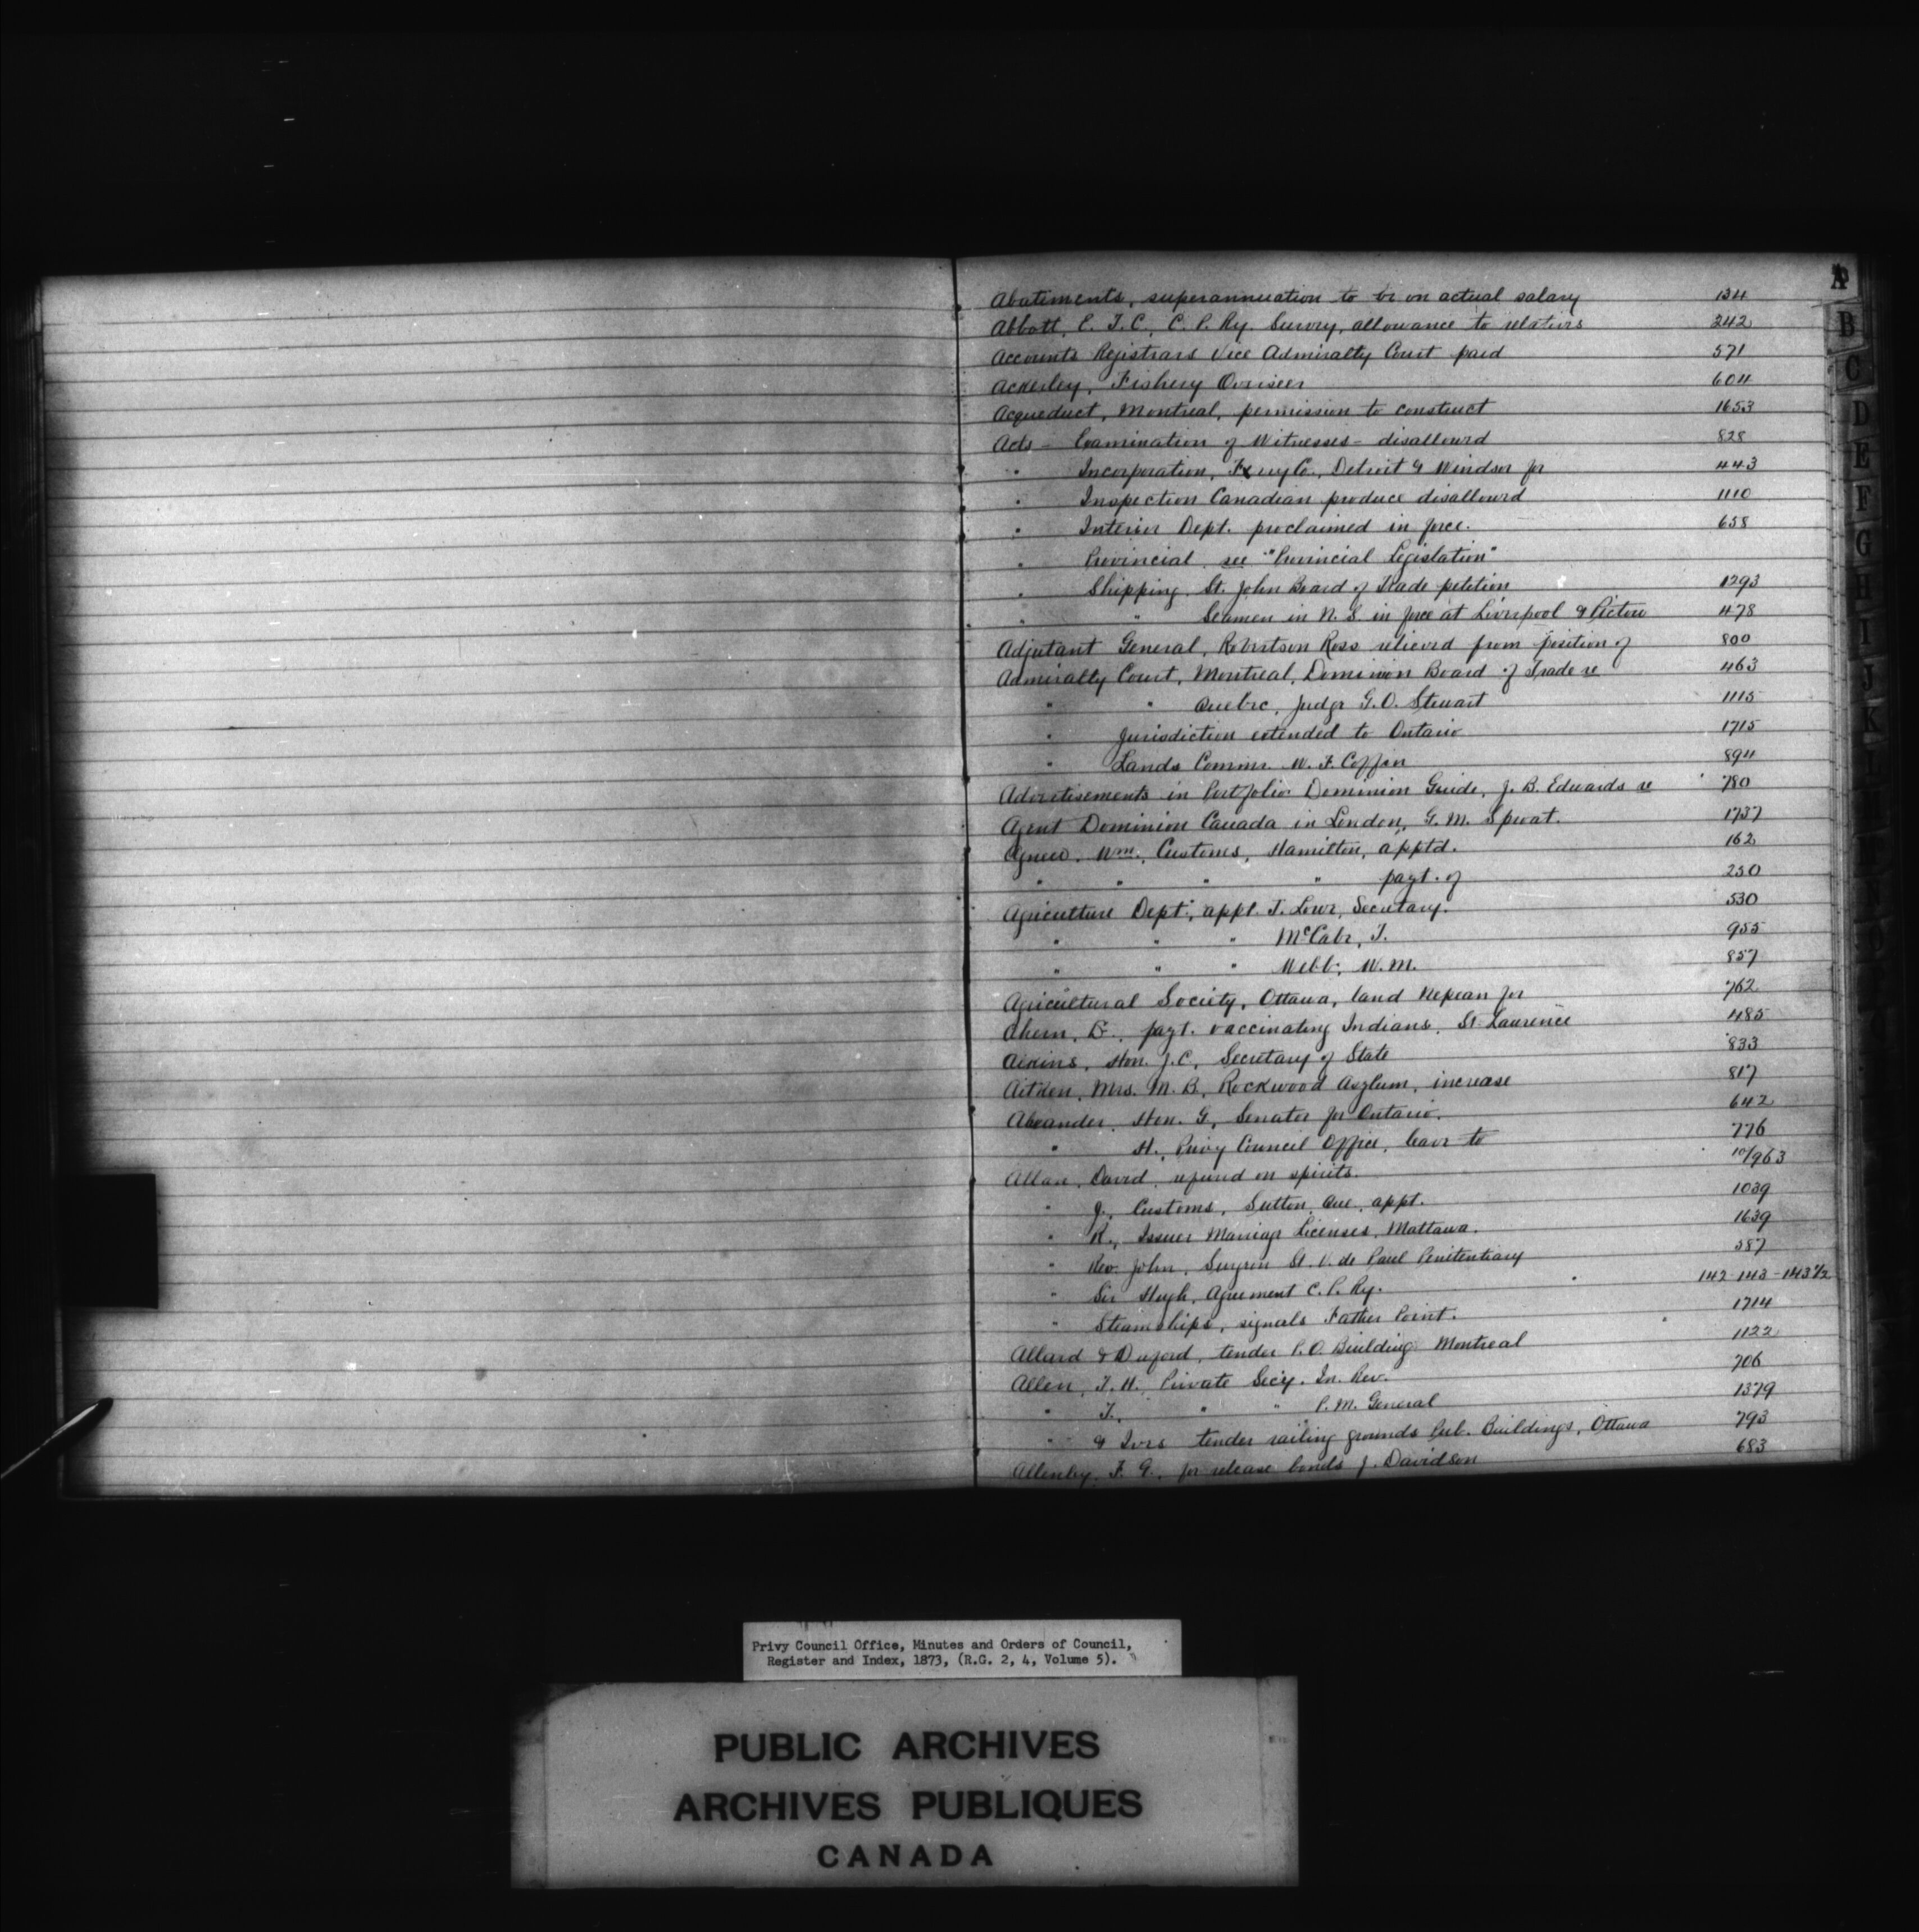 A
B
C
D
E
F
G
H
I
J
K
Abatements, superannuation to be on actual salary 134
Abbott, E. T. C., C. P. Ry. Survey, allowance to relatives 342
Accounts Registrars Vice Admiralty Court paid 571
Ackerley, Fishery Overseer 604
Acqueduct, Montreal, permission to construct 1653
Acts - Examination of Witnesses - disallowed 828
" Incorporation, Ferry Co., Detroit & Windsor for 443
" Inspection Canadian produce disallowed 1110
" Interior Dept. proclaimed in force. 658
" Provincial see "Provincial Legislation"
" Shipping, St. John Board of Trade petition 1293
" " Seamen in N. S. in force at Liverpool & Pictou 478
Adjutant General, Robertson Ross relieved from position of 800
Admiralty Court, Montreal, Dominion Board of Trade re 463
" " Quebec, Judge G. O. Stewart 1115
" Jurisdiction extended to Ontario 1715
" Lands Commr. W. F. Coffin 894
Advertisements in Portfolio Dominion Guide, J. B. Edwards re 780
Agent Dominion Canada in London, G. M. Sproat. 1737
Agnew, Wm., Customs, Hamilton, apptd. 162
" " " " payt. of 250
Agriculture Dept., appt. J. Lowe, Secretary. 530
" " " McCabe, J. 955
" " " Webb, W. M. 857
Agricultural Society, Ottawa, land Nepean for 762
Ahern, payt. vaccinating Indians, St. Laurence 485
Aikins, Hon. J. C., Secretary of State 833
Aitken, Mrs. M. B., Rockwood Asylum, increase 817
Alexander, Hon. G., Senator for Ontario. 642
" H., Privy Council Office, leave to 776
Allan, David, refund on spirits. 10/963
" J., Customs, Sutton, Que, appt. 1039
" R., Issuer Marriage Licenses, Mattawa. 1639
" Rev. John, Surgeon St. V. de Paul Penitentiary 587
" Sir Hugh, Agreement C. P. Ry. 142-143-143 1/2
" Steamships, signals Father Point. 1714
Allard & Duford, tender P. O. Building Montreal 1122
Allen, J. H., Private Secy. In. Rev. 706
" J., " " P. M. General 1379
" & Ives tender railing grounds Pub. Buildings, Ottawa 793
Allenby, F. G., for release bonds J. Davidson 683
Privy Council Office, Minutes and Orders of Council,
Register and Index, 1873, (R.G. 2, 4, Volume 5).
PUBLIC ARCHIVES
ARCHIVES PUBLIQUES
CANADA